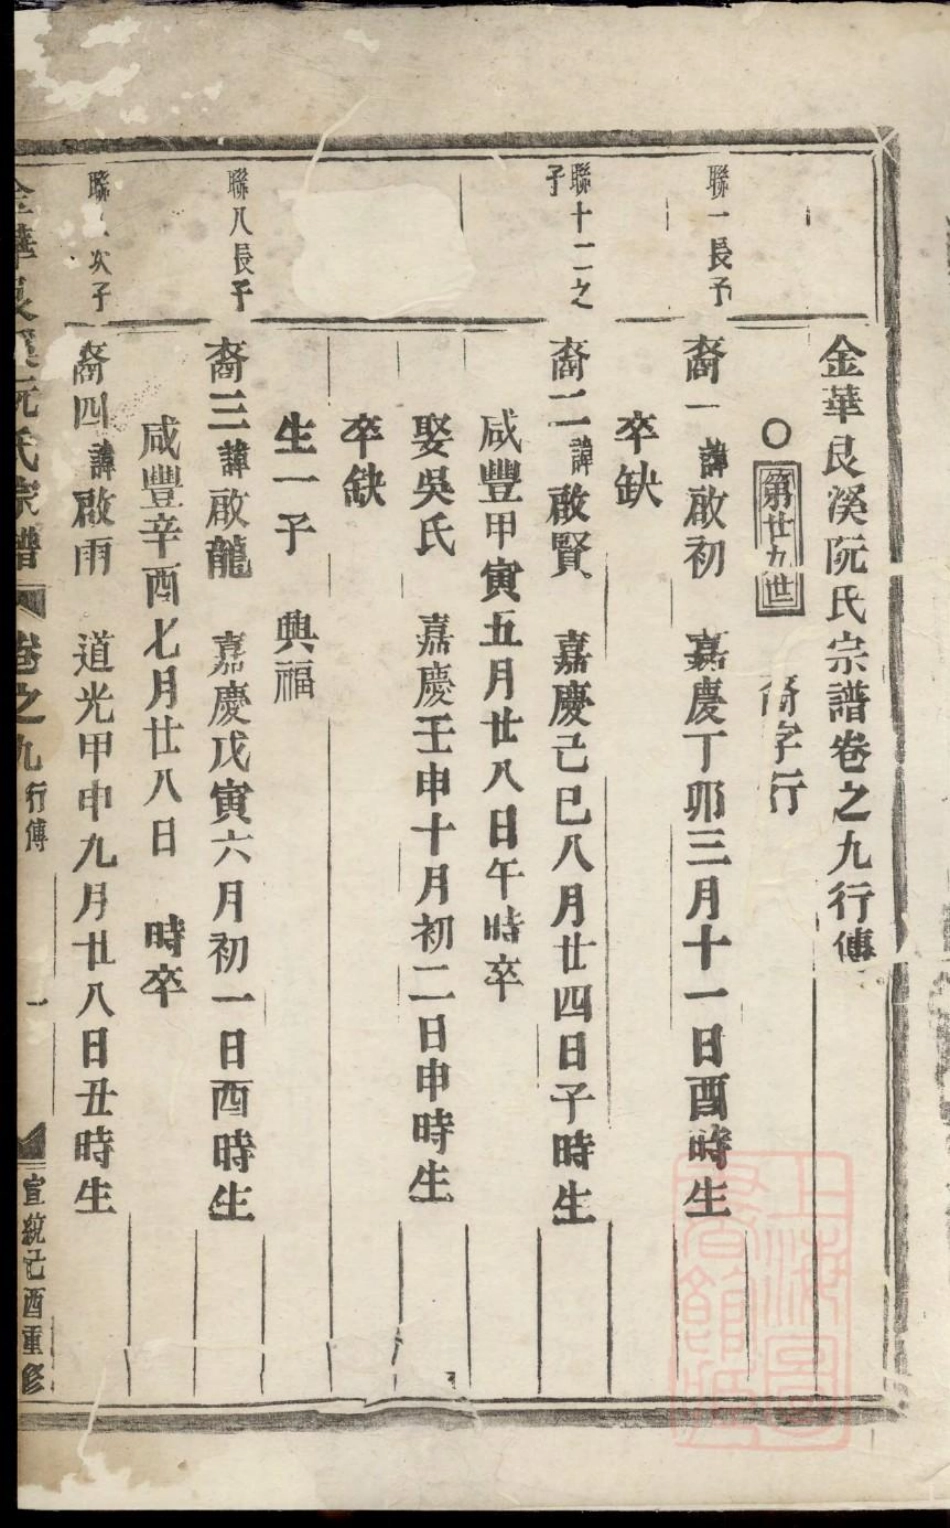 金華艮溪阮氏宗譜卷之九行傳
〇第廿九世 裔字行
聯一長子
裔一諱啟初 嘉慶丁卯三月十一日酉時生
卒缺
聯十二之子
裔二諱啟賢 嘉慶己巳八月廿四日子時生
咸豐甲寅五月廿八日午時卒
娶吳氏 嘉慶壬申十月初二日申時生
卒缺
生一子 興福
聯八長子
裔三諱啟龍 嘉慶戊寅六月初一日酉時生
咸豐辛酉七月廿八日 時卒
聯 次子
裔四諱啟雨 道光甲申九月廿八日丑時生
金華艮溪阮氏宗譜 卷之九 行傳 一 宣統己酉重修
上海圖書館藏